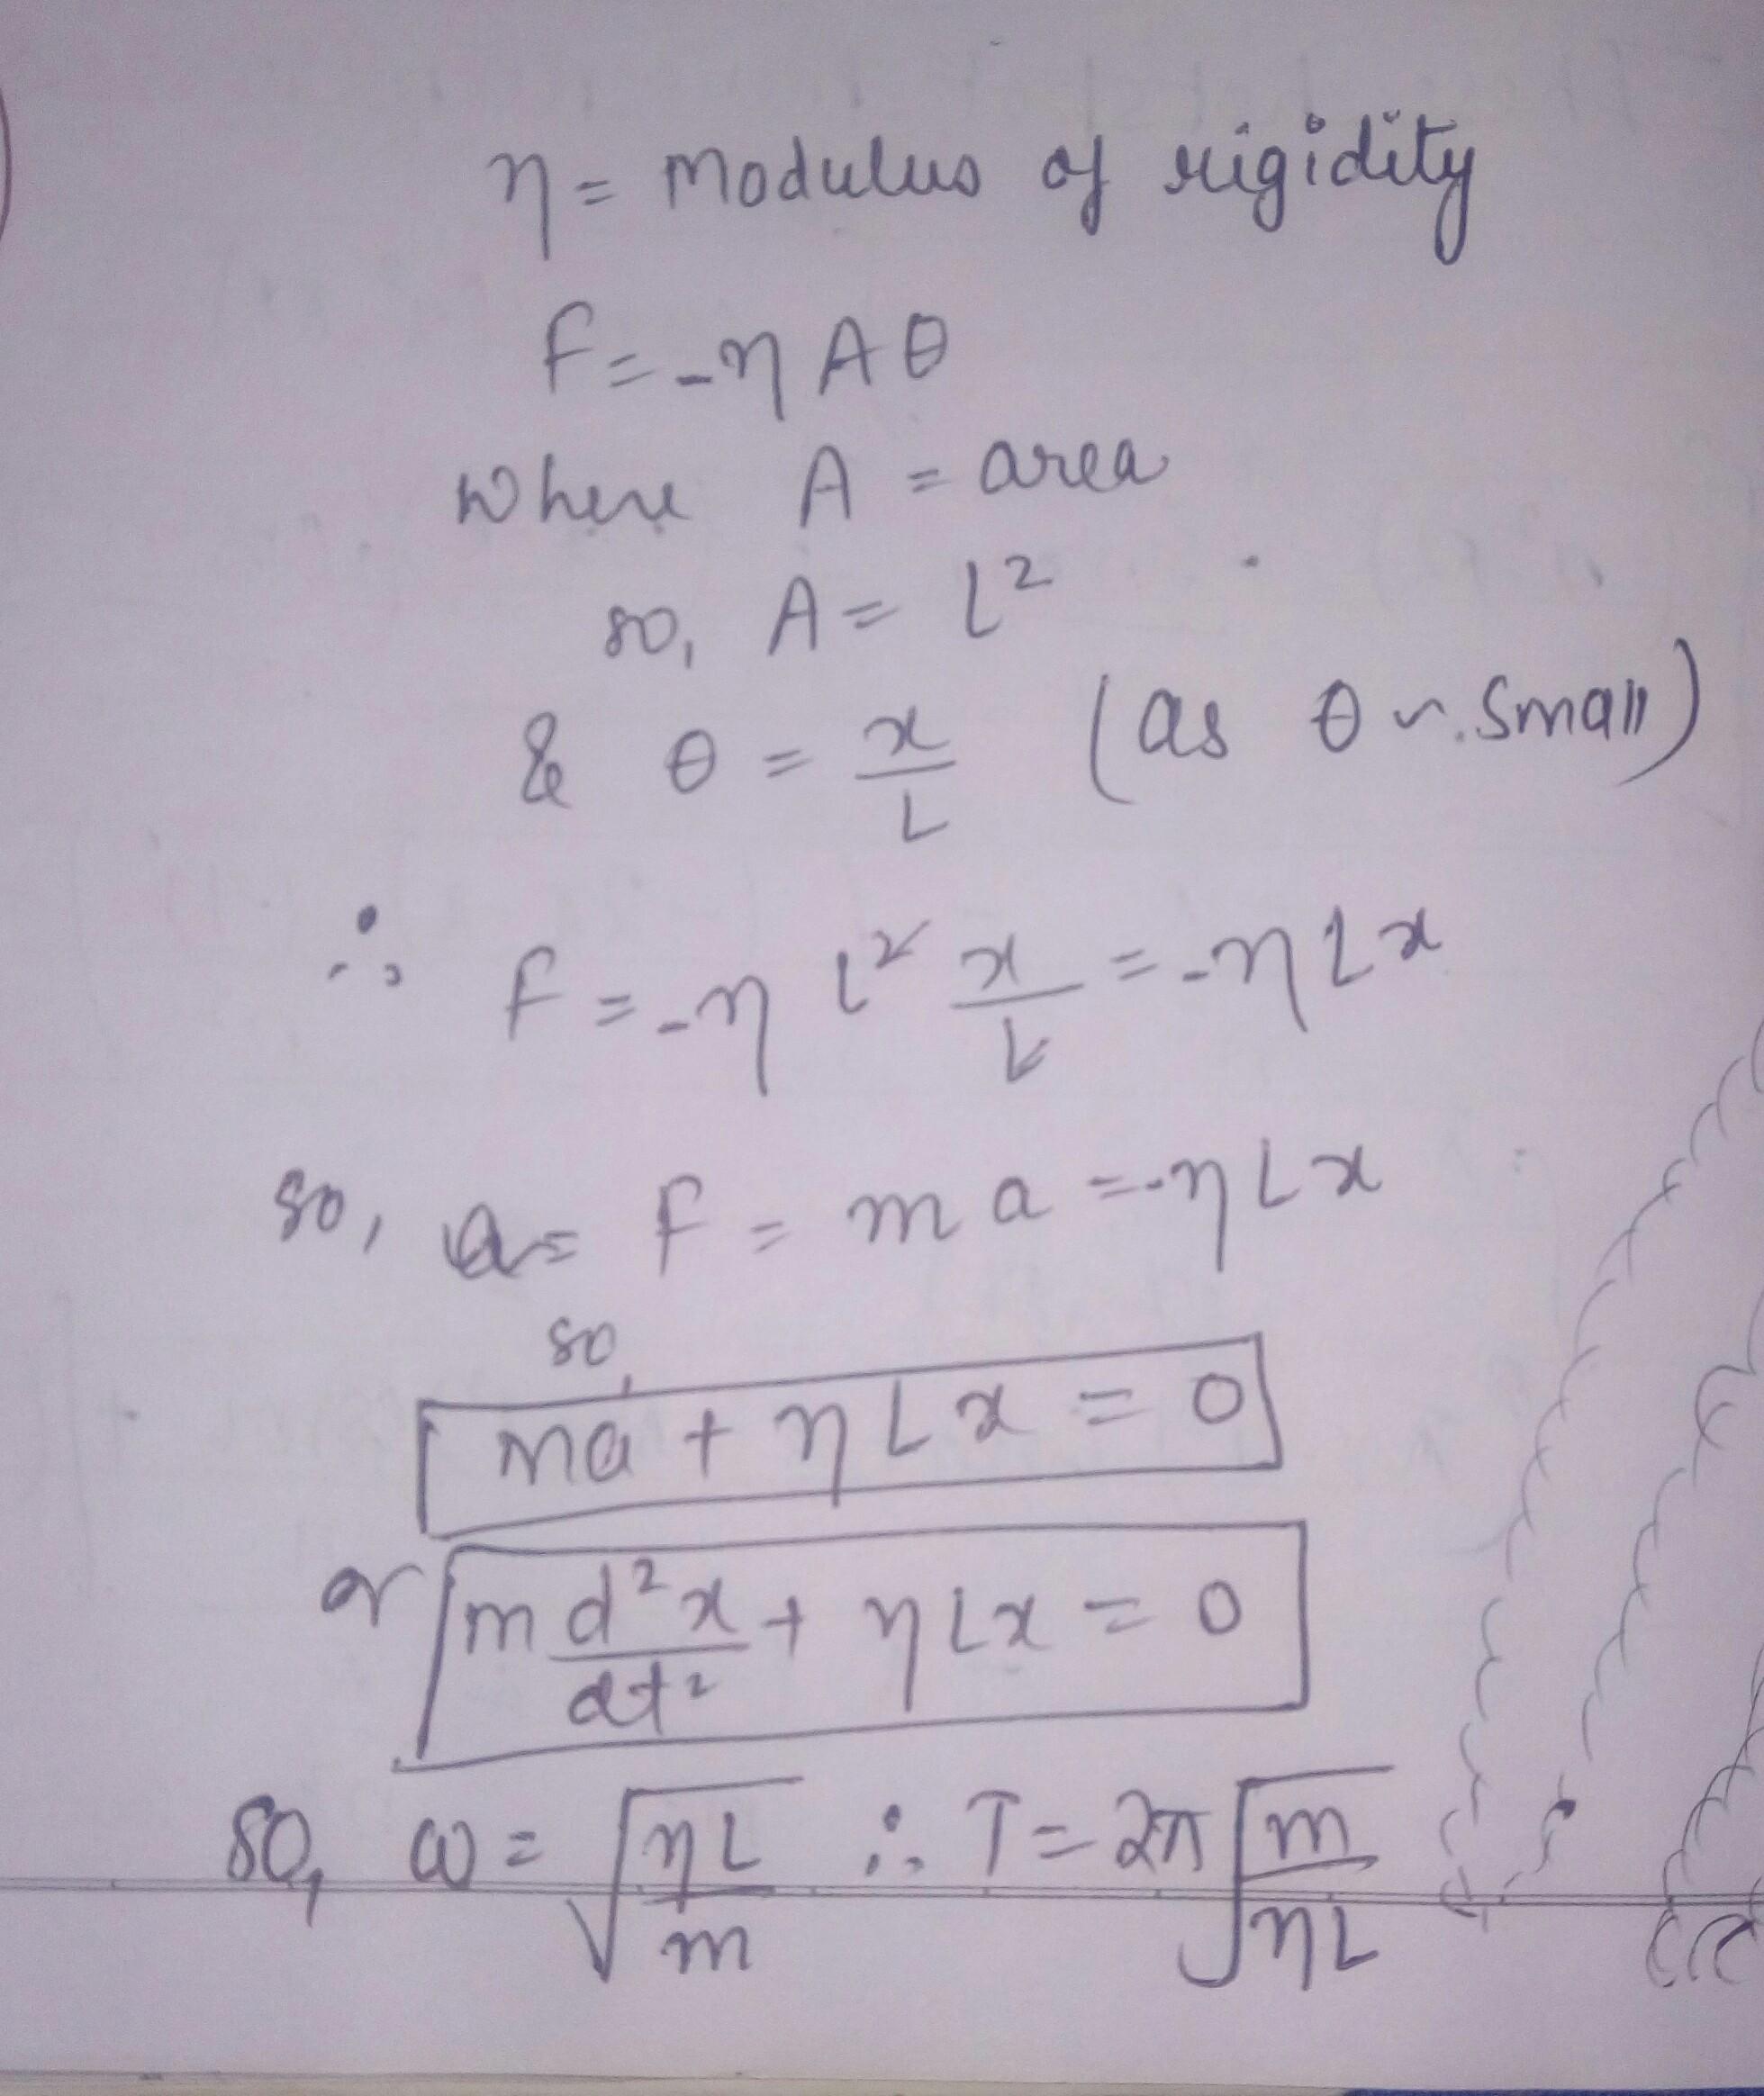 η = Modulus of rigidity
F = -η A θ
where A = area
so, A = L²
& θ = x/L (as θ is small)
∴ F = -η L² x/L = -η L x
so, F = m a = -η L x
so,
ma + η L x = 0
or m d²x/dt² + η L x = 0
so, ω = √(ηL/m) ∴ T = 2π √(m/ηL)